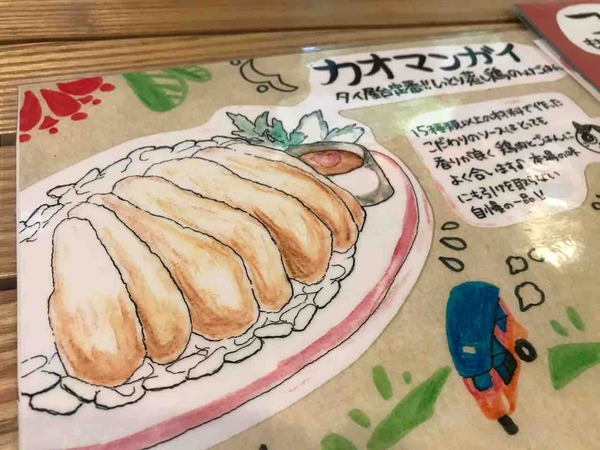 カオマンガイ
タイ屋台定番!! しっとり蒸し鶏のっけごはん
15種類以上の材料で作った
こだわりのソースはとても
香りが良く 鶏肉とごはんに
よく合います♪ 本場の味
にも引けを取らない
自慢の一品!!